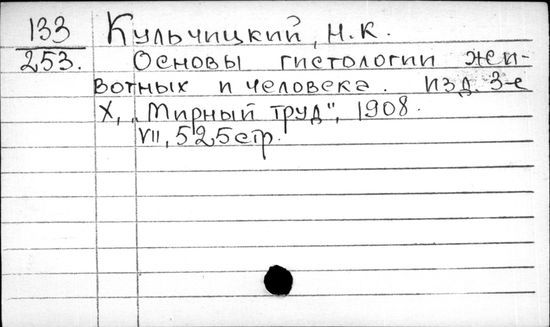 133 Кульчицкий, Н.К.
253. Основы гистологии жи-
вотных и человека. Изд. 3-е
Х, „Мирный труд", 1908.
VII, 525стр.